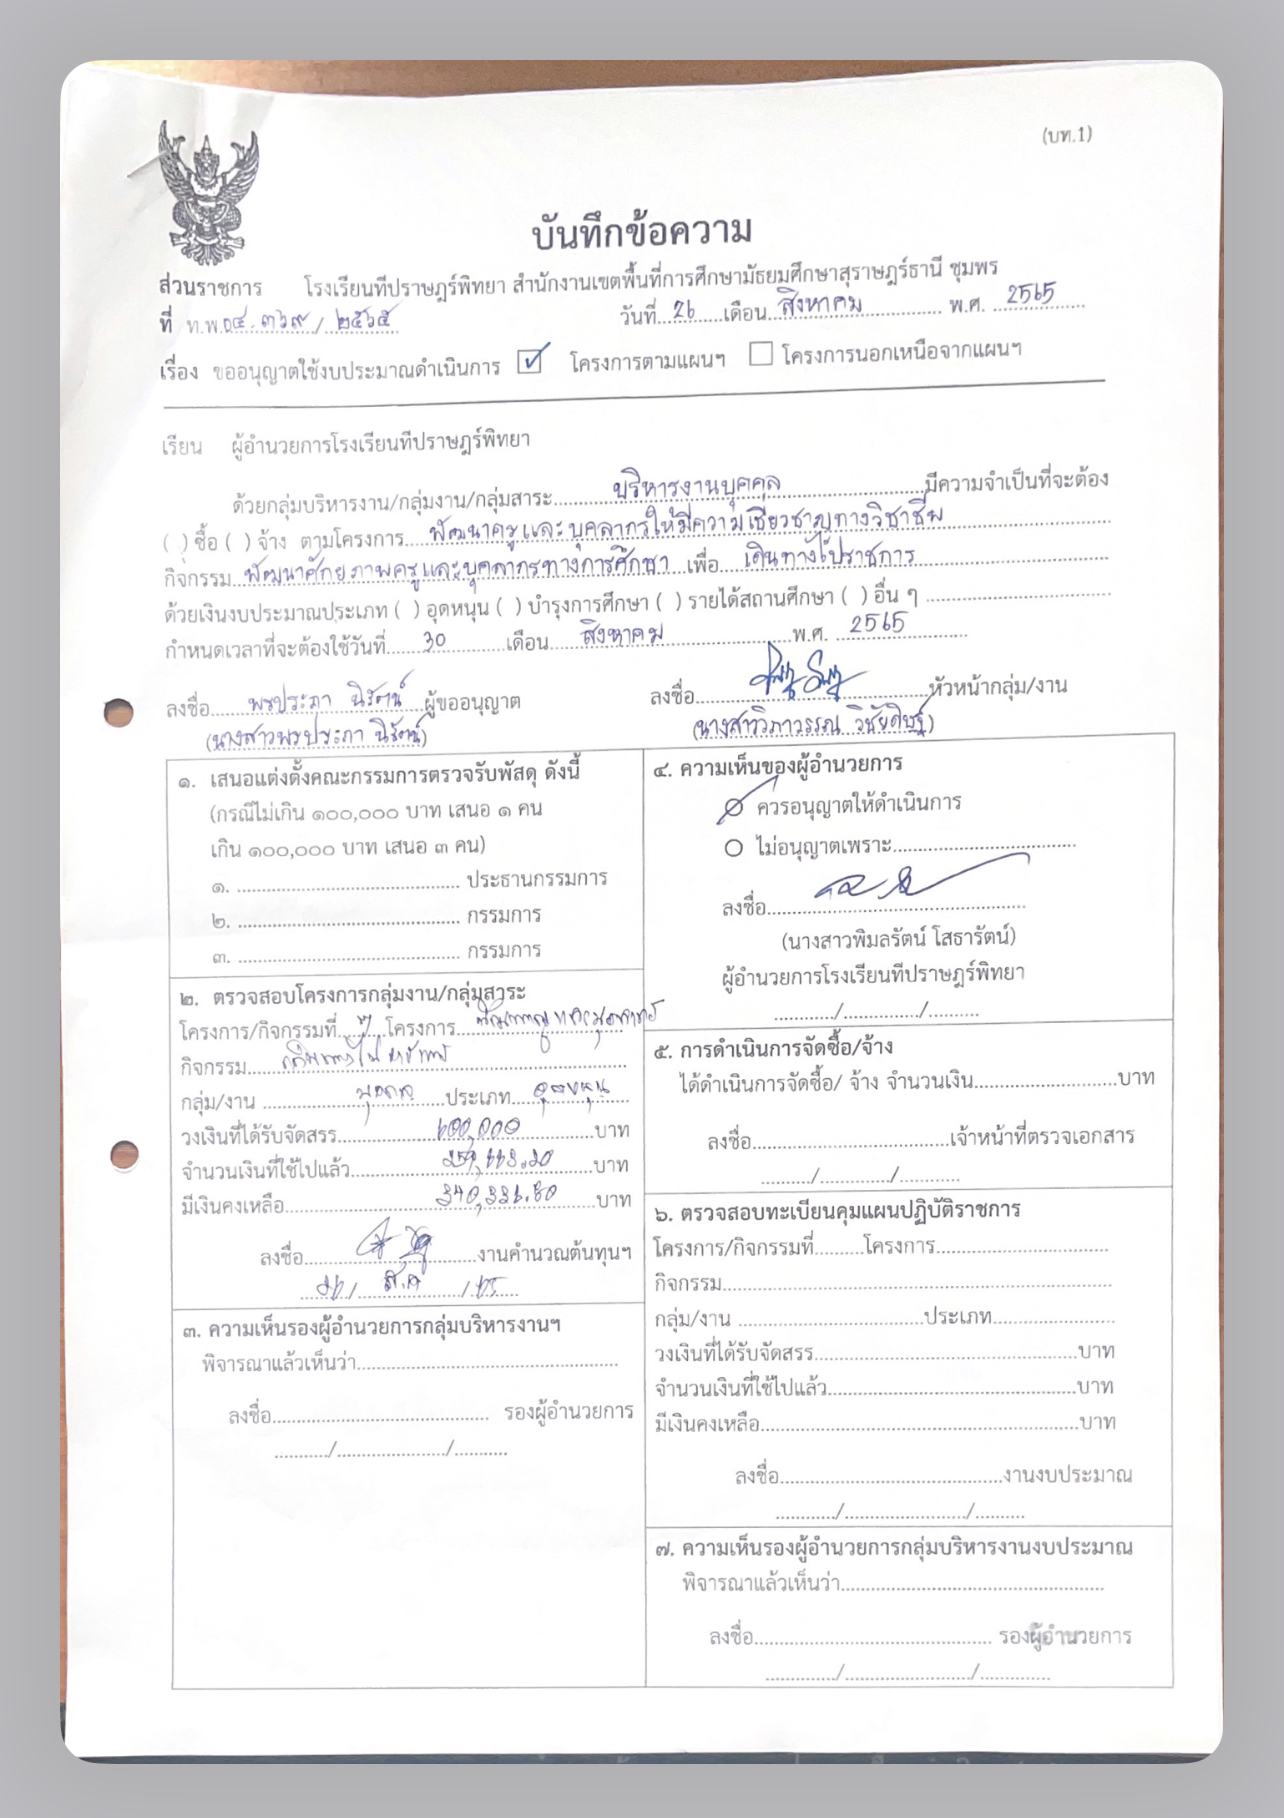 (บท.1)
บันทึกข้อความ
ส่วนราชการ โรงเรียนทีปราษฎร์พิทยา สำนักงานเขตพื้นที่การศึกษามัธยมศึกษาสุราษฎร์ธานี ชุมพร
ที่ ท.พ.๐๔.๓๖๙/๒๕๖๕ วันที่ 26 เดือน สิงหาคม พ.ศ. 2565
เรื่อง ขออนุญาตใช้งบประมาณดำเนินการ ☑ โครงการตามแผนฯ ☐ โครงการนอกเหนือจากแผนฯ
เรียน ผู้อำนวยการโรงเรียนทีปราษฎร์พิทยา
ด้วยกลุ่มบริหารงาน/กลุ่มงาน/กลุ่มสาระ บริหารงานบุคคล มีความจำเป็นที่จะต้อง
( ) ซื้อ ( ) จ้าง ตามโครงการ พัฒนาครูและบุคลากรให้มีความเชี่ยวชาญทางวิชาชีพ
กิจกรรม พัฒนาศักยภาพครูและบุคลากรทางการศึกษา เพื่อ เดินทางไปราชการ
ด้วยเงินงบประมาณประเภท ( ) อุดหนุน ( ) บำรุงการศึกษา ( ) รายได้สถานศึกษา ( ) อื่น ๆ
กำหนดเวลาที่จะต้องใช้วันที่ 30 เดือน สิงหาคม พ.ศ. 2565
ลงชื่อ พรประภา นิรัตน์ ผู้ขออนุญาต ลงชื่อ หัวหน้ากลุ่ม/งาน
(นางสาวพรประภา นิรัตน์) (นางสาววิภาวรรณ วิชัยดิษฐ์)
๑. เสนอแต่งตั้งคณะกรรมการตรวจรับพัสดุ ดังนี้
(กรณีไม่เกิน ๑๐๐,๐๐๐ บาท เสนอ ๑ คน
เกิน ๑๐๐,๐๐๐ บาท เสนอ ๓ คน)
๑. ประธานกรรมการ
๒. กรรมการ
๓. กรรมการ
๒. ตรวจสอบโครงการกลุ่มงาน/กลุ่มสาระ
โครงการ/กิจกรรมที่ โครงการ พัฒนาครูและบุคลากร
กิจกรรม เดินทางไปราชการ
กลุ่ม/งาน บุคคล ประเภท อุดหนุน
วงเงินที่ได้รับจัดสรร 600,000 บาท
จำนวนเงินที่ใช้ไปแล้ว บาท
มีเงินคงเหลือ บาท
ลงชื่อ งานคำนวณต้นทุนฯ
26/ ส.ค /65
๓. ความเห็นรองผู้อำนวยการกลุ่มบริหารงานฯ
พิจารณาแล้วเห็นว่า
ลงชื่อ รองผู้อำนวยการ
๔. ความเห็นของผู้อำนวยการ
ควรอนุญาตให้ดำเนินการ
ไม่อนุญาตเพราะ
ลงชื่อ
(นางสาวพิมลรัตน์ โสธารัตน์)
ผู้อำนวยการโรงเรียนทีปราษฎร์พิทยา
๕. การดำเนินการจัดซื้อ/จ้าง
ได้ดำเนินการจัดซื้อ/ จ้าง จำนวนเงิน บาท
ลงชื่อ เจ้าหน้าที่ตรวจเอกสาร
๖. ตรวจสอบทะเบียนคุมแผนปฏิบัติราชการ
โครงการ/กิจกรรมที่ โครงการ
กิจกรรม
กลุ่ม/งาน ประเภท
วงเงินที่ได้รับจัดสรร บาท
จำนวนเงินที่ใช้ไปแล้ว บาท
มีเงินคงเหลือ บาท
ลงชื่อ งานงบประมาณ
๗. ความเห็นรองผู้อำนวยการกลุ่มบริหารงานงบประมาณ
พิจารณาแล้วเห็นว่า
ลงชื่อ รองผู้อำนวยการ